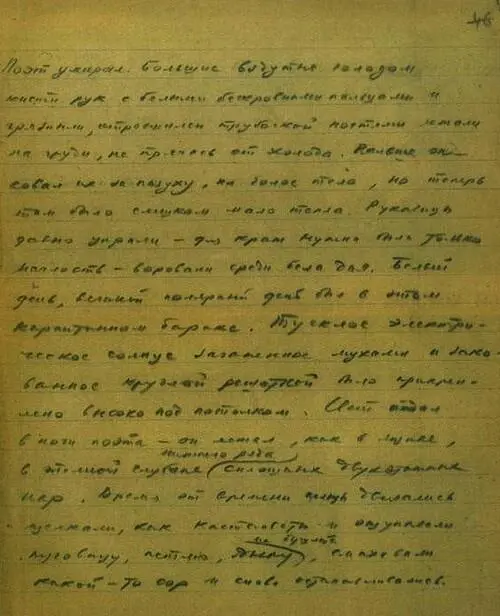 46
Поэт умирал. Большие вздутые голодом
кисти рук с белыми бескровными пальцами и
грязными, отросшими трубочкой ногтями лежали
на груди, не прячась от холода. Раньше он со-
вал их за пазуху, на голое тело, но теперь
там было слишком мало тепла. Рукавицы
давно украли – для краж нужна была только
наглость – воровали среди бела дня. Белый
день, полярный день был в этом
карантинном бараке. Тусклое электри-
ческое солнце загаженное мухами и зако-
ванное круглой решеткой было прикреп-
лено высоко под потолком. Свет падал
в ноги поэта – он лежал, как в ящике,
нижнего ряда
в темной глубине сплошных двухэтажных
нар. Время от времени пальцы двигались
щелкали, как кастаньеты и ощупывали
на бушлате
пуговицу, петлю, дыру, смахивали
какой-то сор и снова останавливались.